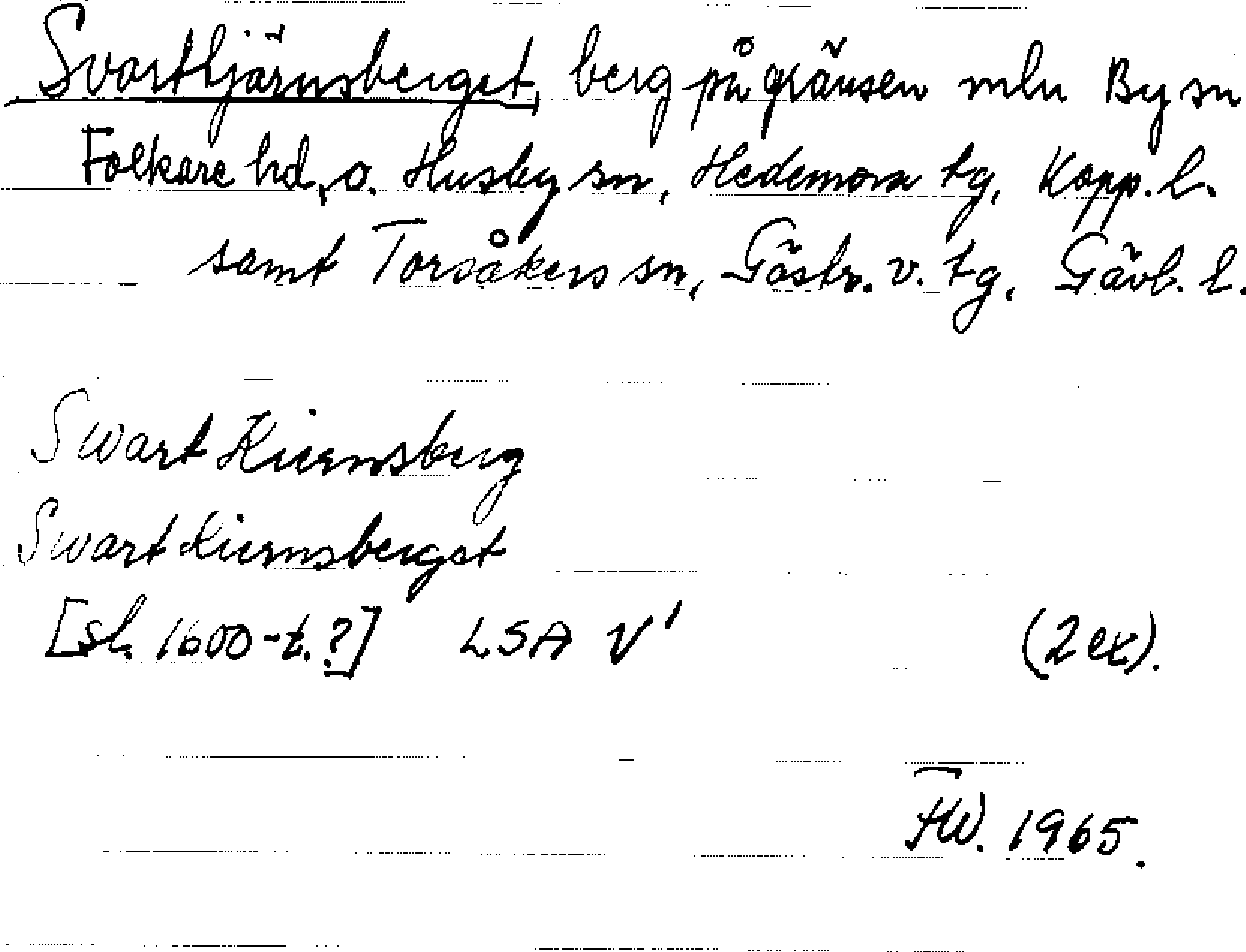 Svarttjärnsberget, berg på gränsen mln By sn
Folkare hd, o. Husby sn, Hedemora tg, Kopp. l.
samt Torsåkers sn, Gästr. v. tg, Gävl. l.
Swart Kiernsberg
Swart Kiernsberget
[sl. 1600-t.?] LSA V1 (2 ex).
FW. 1965.